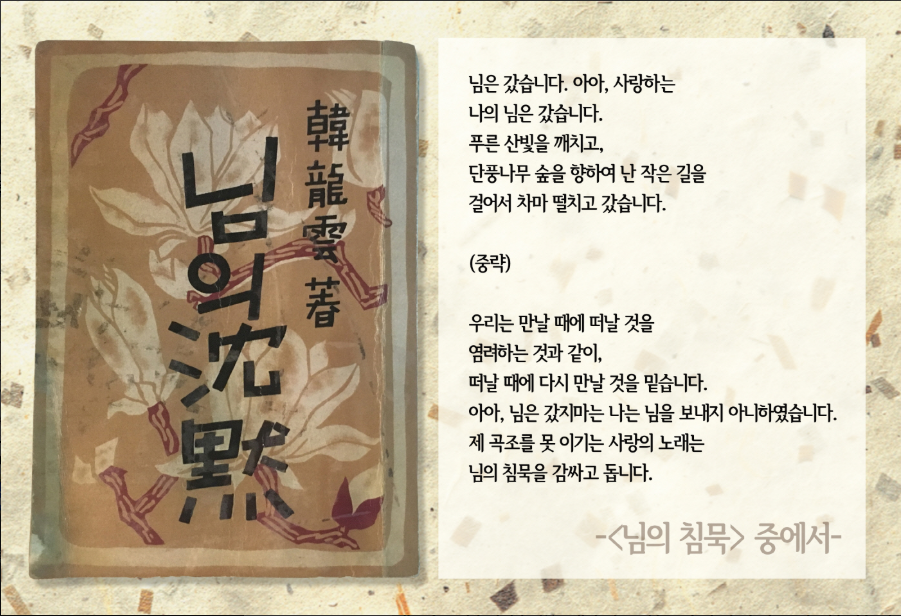 韓龍雲 著
님의 沈默
님은 갔습니다. 아아, 사랑하는
나의 님은 갔습니다.
푸른 산빛을 깨치고,
단풍나무 숲을 향하여 난 작은 길을
걸어서 차마 떨치고 갔습니다.
(중략)
우리는 만날 때에 떠날 것을
염려하는 것과 같이,
떠날 때에 다시 만날 것을 믿습니다.
아아, 님은 갔지마는 나는 님을 보내지 아니하였습니다.
제 곡조를 못 이기는 사랑의 노래는
님의 침묵을 감싸고 돕니다.
-<님의 침묵> 중에서-